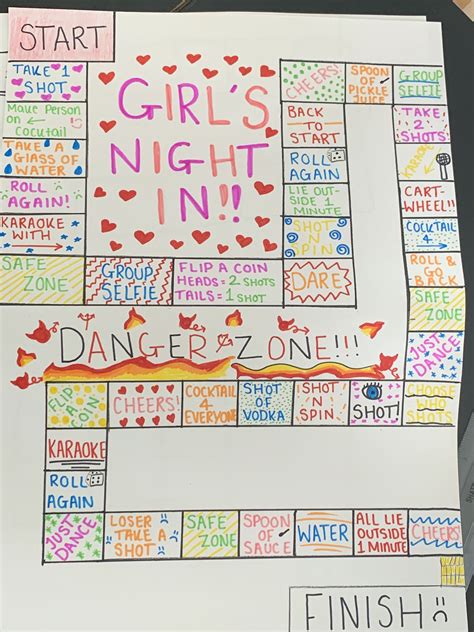 START
GIRL'S
NIGHT
IN!!
TAKE 1
SHOT
Make Person
on ← Cocktail
TAKE A
GLASS OF
WATER
ROLL
AGAIN!
KARAOKE
WITH →
SAFE
ZONE
GROUP
SELFIE
FLIP A COIN
HEADS = 2 SHOTS
TAILS = 1 SHOT
DARE
SHOT
N
SPIN
LIE OUT-
SIDE 1
MINUTE
ROLL
AGAIN
BACK
TO
START
CHEERS!
SPOON OF
PICKLE
JUICE
GROUP
SELFIE
TAKE
2
SHOTS
KARAOKE
CART-
WHEEL!!
COCKTAIL
4 →
ROLL &
GO
BACK
SAFE
ZONE
JUST
DANCE
DANGER ZONE!!!
CHOOSE
WHO
SHOTS
SHOT!
SHOT
N
SPIN
SHOT
OF
VODKA
COCKTAIL
4
EVERYONE
CHEERS!
FLIP
A
COIN
KARAOKE
ROLL
AGAIN
JUST
DANCE
LOSER
TAKE A
SHOT
SAFE
ZONE
SPOON
OF
SAUCE
WATER
ALL LIE
OUTSIDE
1 MINUTE
CHEERS
FINISH :(